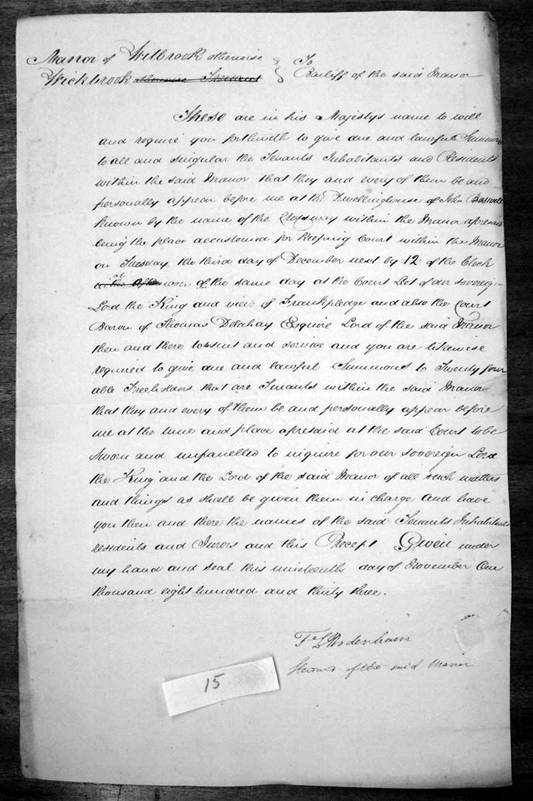 Manor of Welbrook otherwise
Wickbrook otherwise } To
Bailiff of the said Manor
These are in his Majestys name to will
and require you forthwith to give due and lawful Summons
to all and singular the Tenants Inhabitants and Residents
within the said Manor that they and every of them be and
personally appear before me at the Dwellinghouse of John
known by the name of the within the Manor aforesaid
being the place accustomed for keeping Court within the Manor
on Tuesday the third day of December next by 12 of the Clock
at noon of the same day at the Court Leet of our sovereign
Lord the King and view of Frankpledge and also the Court
Baron of Thomas Delahay Esquire Lord of the said Manor
then and there to be suit and service and you are likewise
required to give due and lawful Summons to Twenty four
able Freeholders that are Tenants within the said Manor
that they and every of them be and personally appear before
me at the time and place aforesaid at the said Court to be
Sworn and impanelled to inquire for our sovereign Lord
the King and the Lord of the said Manor of all such matters
and things as shall be given them in charge and have
you then and there the names of the said Tenants Inhabitants
residents and Jurors and this Precept Given under
my hand and seal this nineteenth day of November One
thousand eight hundred and thirty three.
Bodenham
Steward of the said Manor
15